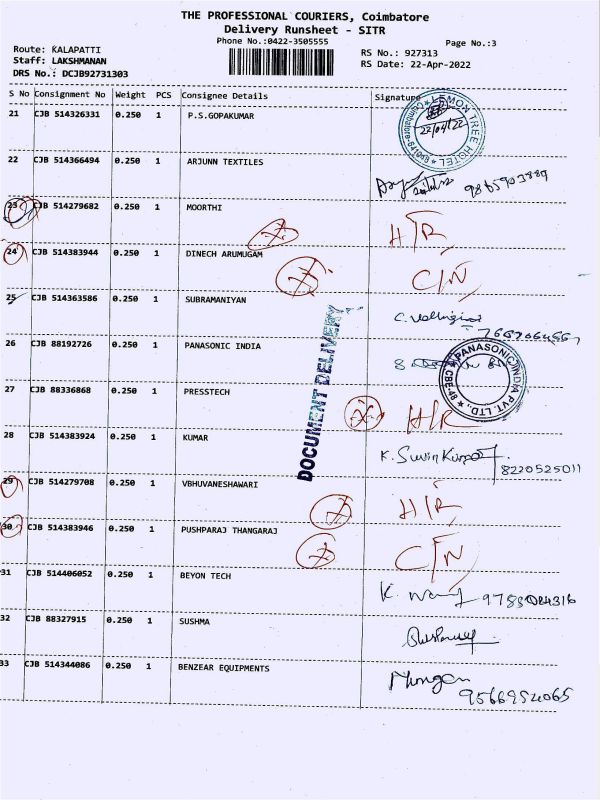 THE PROFESSIONAL COURIERS, Coimbatore
Delivery Runsheet - SITR
Phone No.:0422-3505555
Page No.:3
Route: KALAPATTI
RS No.: 927313
Staff: LAKSHMANAN
RS Date: 22-Apr-2022
DRS No.: DCJB92731303
S No Consignment No Weight PCS Consignee Details Signature
21 CJB 514326331 0.250 1 P.S.GOPAKUMAR
LEMON TREE HOTEL
22/04/22
22 CJB 514366494 0.250 1 ARJUNN TEXTILES
9865903889
23 CJB 514279682 0.250 1 MOORTHI H/R
24 CJB 514383944 0.250 1 DINECH ARUMUGAM C/N
25 CJB 514363586 0.250 1 SUBRAMANIYAN
26 CJB 88192726 0.250 1 PANASONIC INDIA
PANASONIC INDIA PVT. LTD.,
DOCUMENT DELIVERY
27 CJB 88336868 0.250 1 PRESSTECH H/R
28 CJB 514383924 0.250 1 KUMAR
8220525011
29 CJB 514279708 0.250 1 VBHUVANESHAWARI H/R
30 CJB 514383946 0.250 1 PUSHPARAJ THANGARAJ C/N
31 CJB 514406052 0.250 1 BEYON TECH
32 CJB 88327915 0.250 1 SUSHMA
33 CJB 514344086 0.250 1 BENZEAR EQUIPMENTS